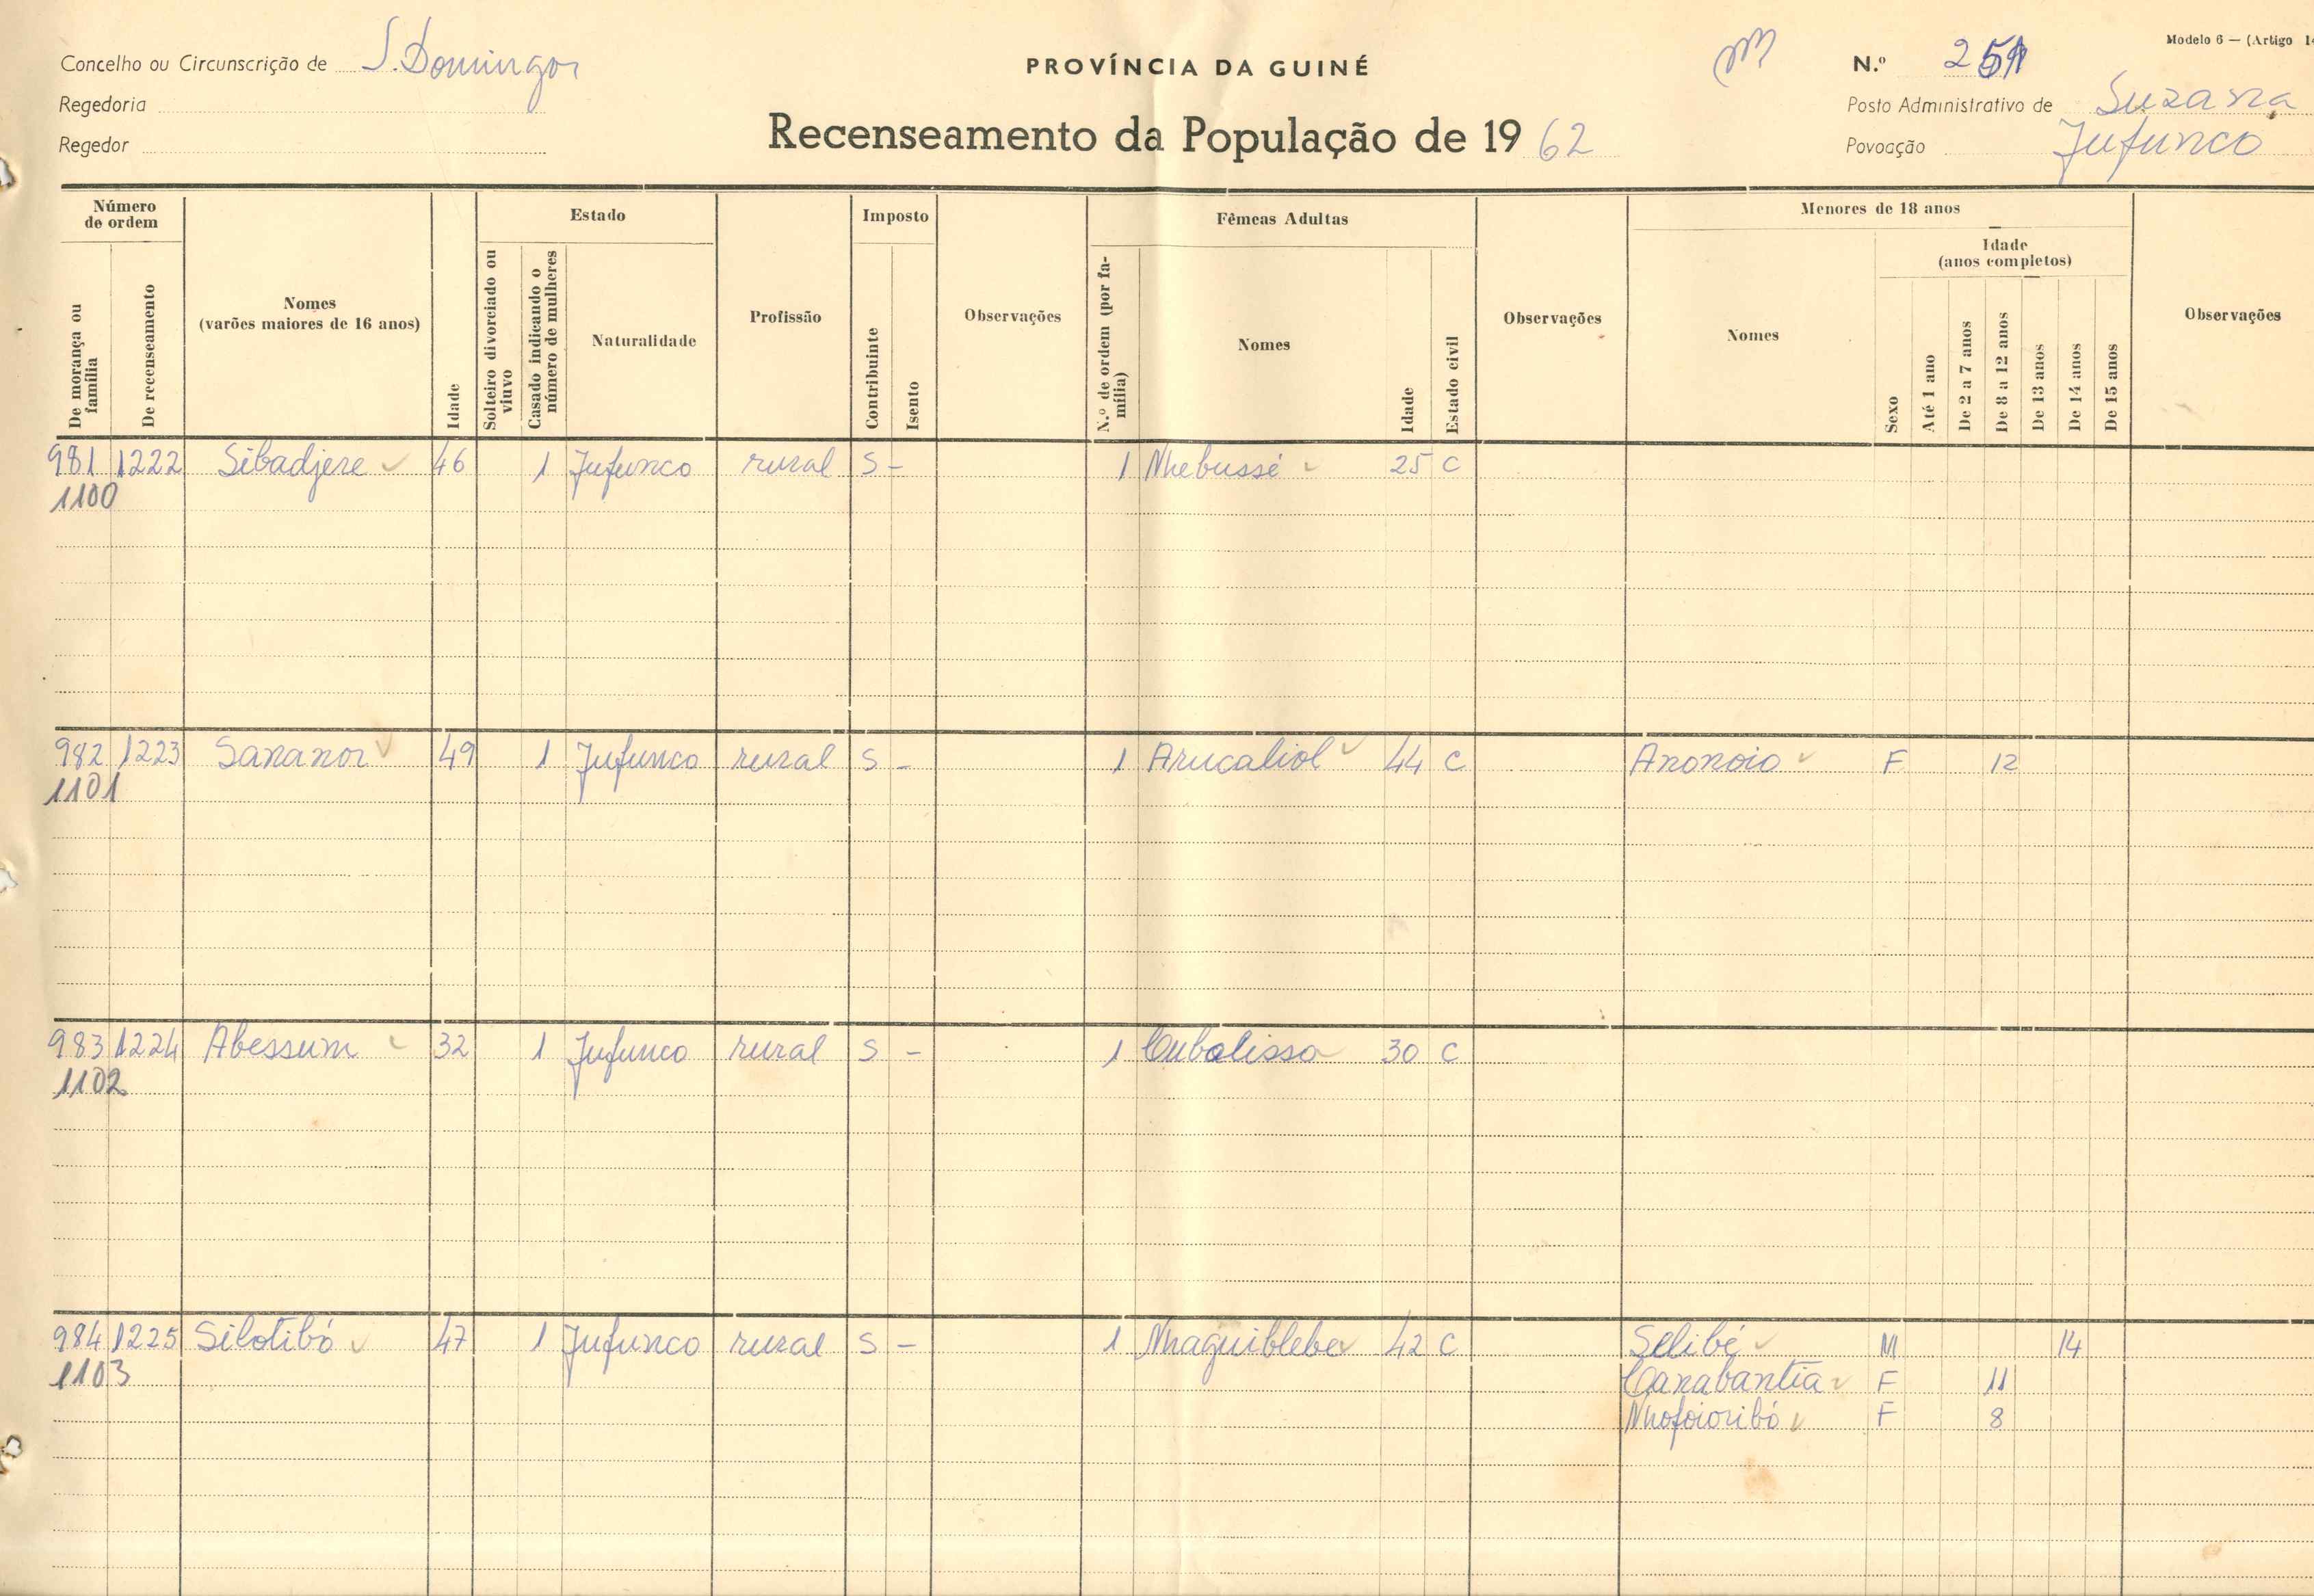 Modelo 6 — (Artigo 14
Concelho ou Circunscrição de S. Domingos
PROVÍNCIA DA GUINÉ
N.º 251
Regedoria
Posto Administrativo de Suzana
Recenseamento da População de 1962
Regedor
Povoação Jufunco
Número de ordem
Estado
Imposto
Fêmeas Adultas
Menores de 18 anos
Idade (anos completos)
De morança ou família
De recenseamento
Nomes (varões maiores de 16 anos)
Idade
Solteiro divorciado ou viuvo
Casado indicando o número de mulheres
Naturalidade
Profissão
Contribuinte
Isento
Observações
N.º de ordem (por família)
Nomes
Idade
Estado civil
Observações
Nomes
Sexo
Até 1 ano
De 2 a 7 anos
De 8 a 12 anos
De 13 anos
De 14 anos
De 15 anos
Observações
981 1222 Sibadjene 46 1 Jufunco rural S - 1 Nhebussé 25 C
1100
982 1223 Sananor 49 1 Jufunco rural S - 1 Anucaliol 44 C Anonoio F 12
1101
983 1224 Abessum 32 1 Jufunco rural S - 1 Cubalissa 30 C
1102
984 1225 Silotibó 47 1 Jufunco rural S - 1 Nhaguiblebe 42 C Selibé M 14
1103 Canabantia F 11
Nhofoioribó F 8